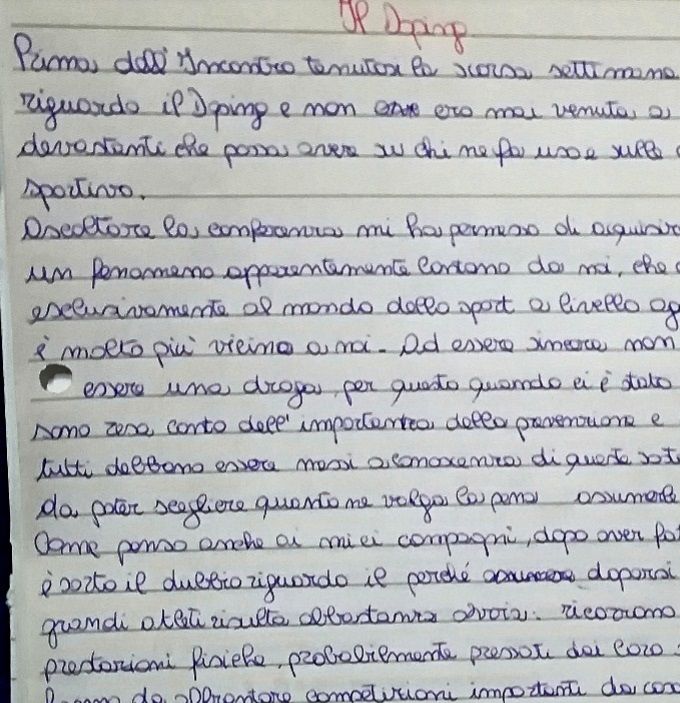 Il Doping
Prima dell'Incontro tenutosi la scorsa settimana
riguardo il Doping e non ero mai venuta a
devastanti che possa avere su chi ne fa uso e sulla
sportivo.
Ascoltare la conferenza mi ha permesso di acquisire
un fenomeno apparentemente lontano da noi, che
esclusivamente al mondo dello sport a livello ag
è molto più vicino a noi. Ad essere sincera non
essere una droga, per questo quando ci è stato
sono resa conto dell'importanza della prevenzione e
tutti debbano essere messi a conoscenza di queste sot
da poter scegliere quanto ne valga la pena assumere
Come penso anche ai miei compagni, dopo aver
è sorto il dubbio riguardo il perché doparsi
grandi atleti risulta abbastanza ovvia: ricorrono
prestazioni fisiche, probabilmente pressati dai loro
da affrontare competizioni importanti da